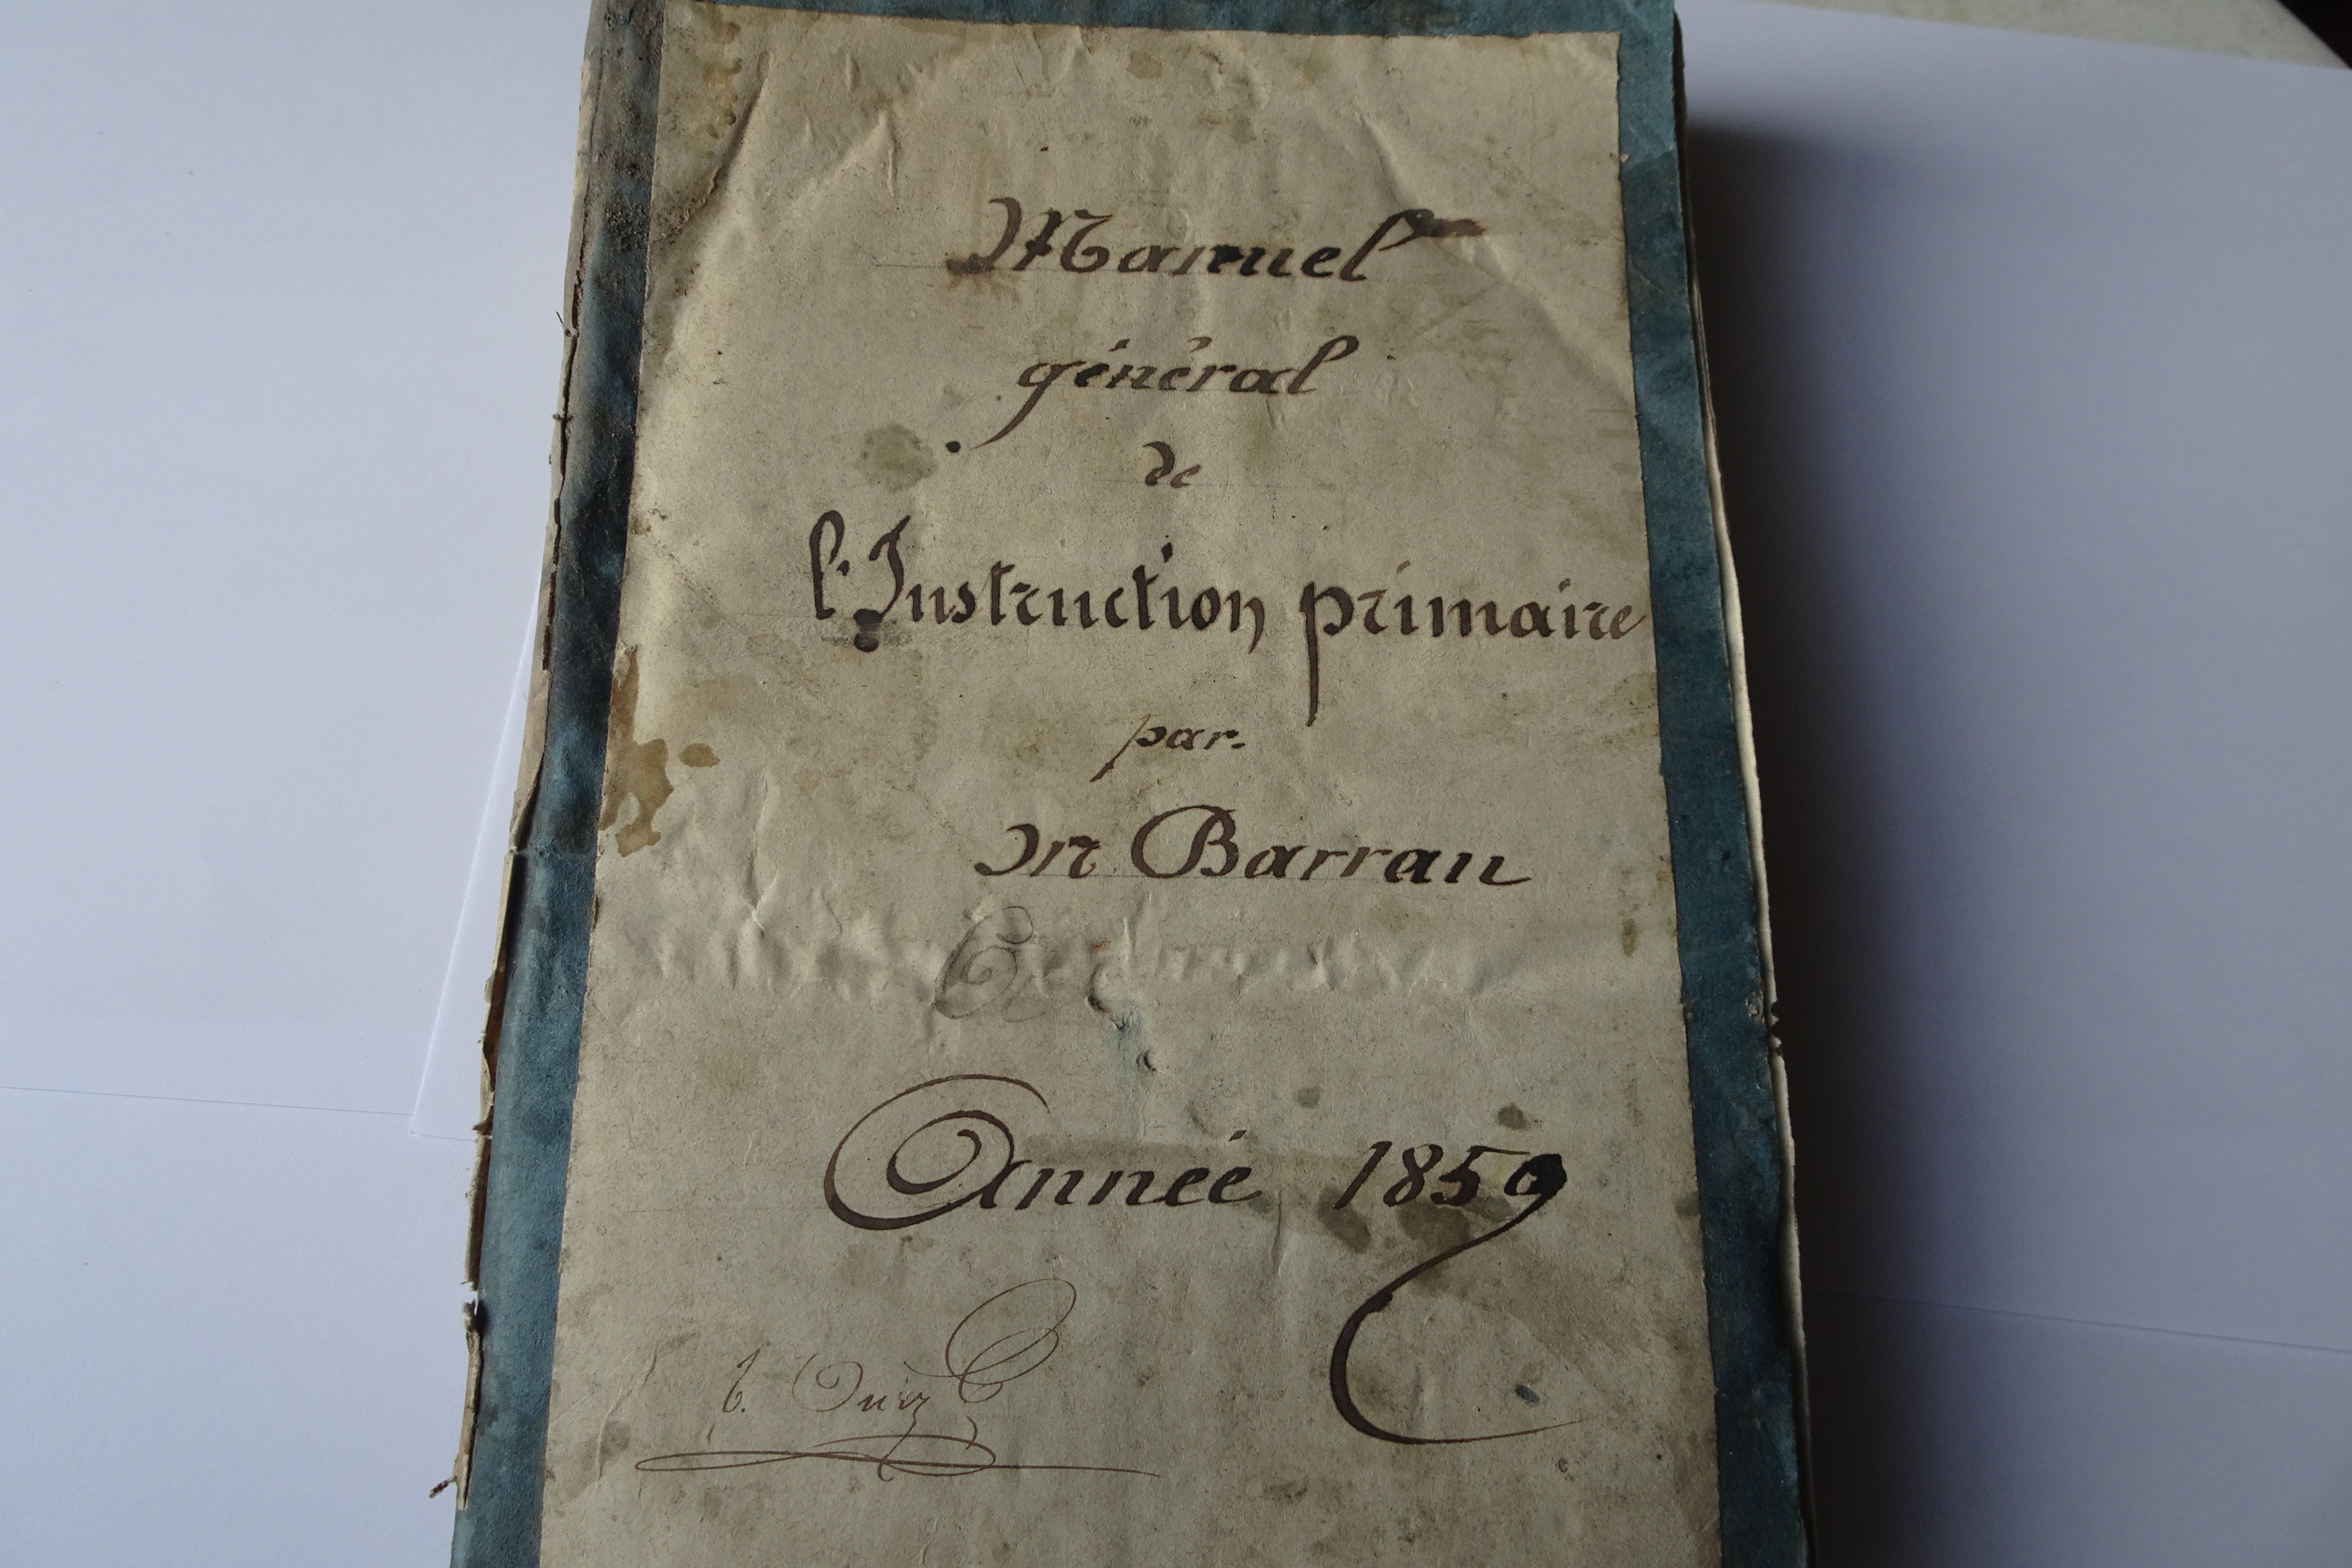 Manuel
général
de
l'Instruction primaire
par
Mr Barrau
Année 1859